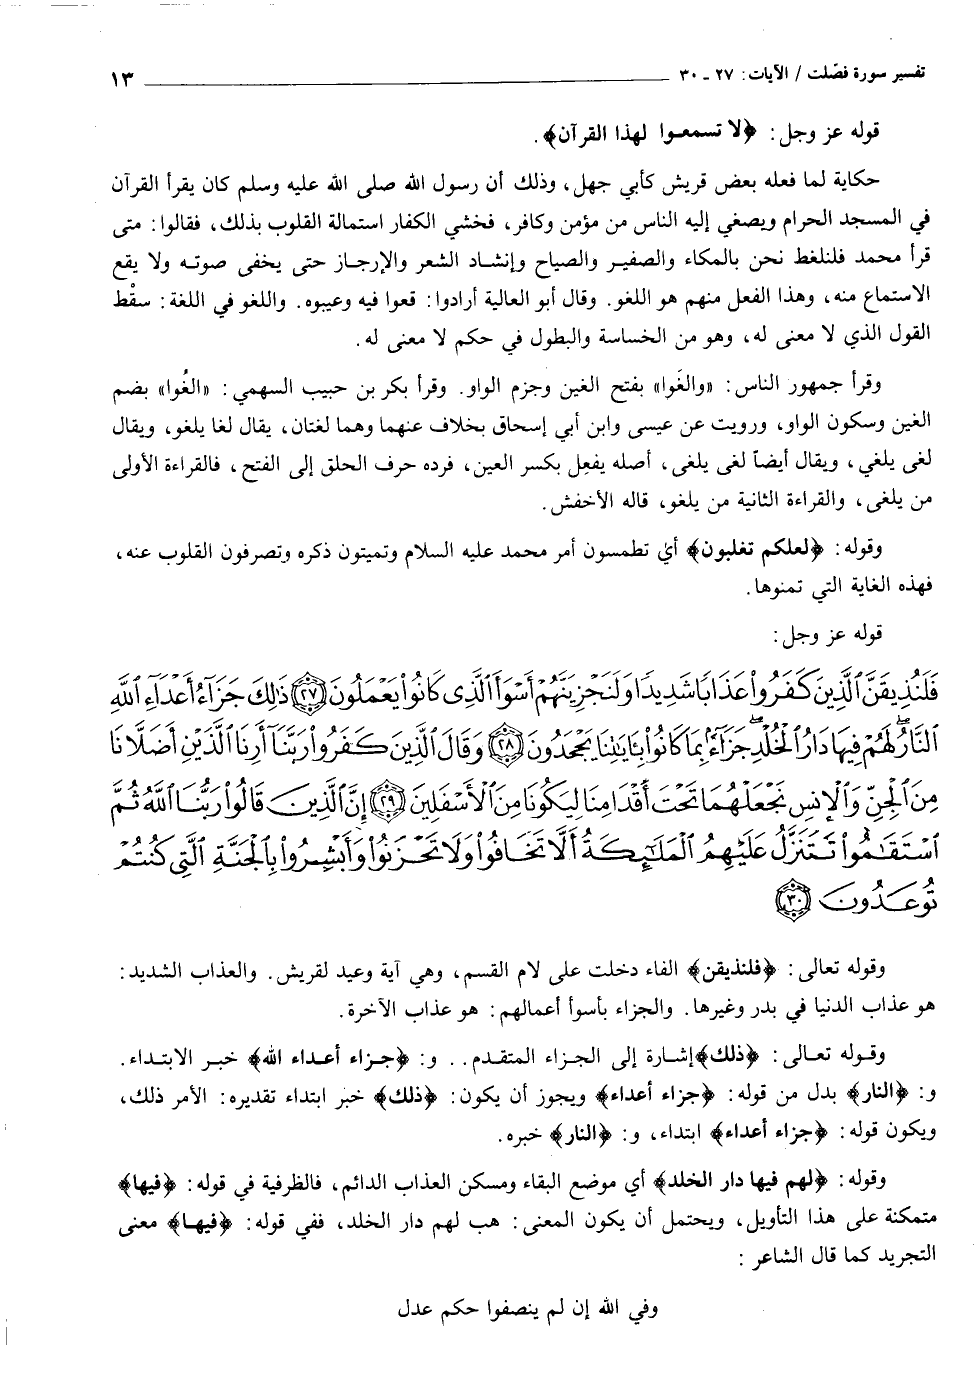 تفسير سورة فصّلت / الآيات: ٢٧ ـ ٣٠
١٣
قوله عز وجل: ﴿لا تسمعوا لهذا القرآن﴾.
حكاية لما فعله بعض قريش كأبي جهل، وذلك أن رسول الله صلى الله عليه وسلم كان يقرأ القرآن
في المسجد الحرام ويصغي إليه الناس من مؤمن وكافر، فخشي الكفار استمالة القلوب بذلك، فقالوا: متى
قرأ محمد فلنلغط نحن بالمكاء والصفير والصياح وإنشاد الشعر والإرجاز حتى يخفى صوته ولا يقع
الاستماع منه، وهذا الفعل منهم هو اللغو. وقال أبو العالية أرادوا: قعوا فيه وعيبوه. واللغو في اللغة: سقْط
القول الذي لا معنى له، وهو من الخساسة والبطول في حكم لا معنى له.
وقرأ جمهور الناس: «والغَوا» بفتح الغين وجزم الواو. وقرأ بكر بن حبيب السهمي: «الغُوا» بضم
الغين وسكون الواو، ورويت عن عيسى وابن أبي إسحاق بخلاف عنهما وهما لغتان، يقال لغا يلغو، ويقال
لغى يلغي، ويقال أيضاً لغى يلغى، أصله يفعِل بكسر العين، فرده حرف الحلق إلى الفتح، فالقراءة الأولى
من يلغى، والقراءة الثانية من يلغو، قاله الأخفش.
وقوله: ﴿لعلكم تغلبون﴾ أي تطمسون أمر محمد عليه السلام وتميتون ذكره وتصرفون القلوب عنه،
فهذه الغاية التي تمنوها.
قوله عز وجل:
فَلَنُذِيقَنَّ ٱلَّذِينَ كَفَرُوا۟ عَذَابًا شَدِيدًا وَلَنَجْزِيَنَّهُمْ أَسْوَأَ ٱلَّذِى كَانُوا۟ يَعْمَلُونَ ﴿٢٧﴾ ذَٰلِكَ جَزَآءُ أَعْدَآءِ ٱللَّهِ
ٱلنَّارُ ۖ لَهُمْ فِيهَا دَارُ ٱلْخُلْدِ ۖ جَزَآءًۢ بِمَا كَانُوا۟ بِـَٔايَٰتِنَا يَجْحَدُونَ ﴿٢٨﴾ وَقَالَ ٱلَّذِينَ كَفَرُوا۟ رَبَّنَآ أَرِنَا ٱلَّذَيْنِ أَضَلَّانَا
مِنَ ٱلْجِنِّ وَٱلْإِنسِ نَجْعَلْهُمَا تَحْتَ أَقْدَامِنَا لِيَكُونَا مِنَ ٱلْأَسْفَلِينَ ﴿٢٩﴾ إِنَّ ٱلَّذِينَ قَالُوا۟ رَبُّنَا ٱللَّهُ ثُمَّ
ٱسْتَقَٰمُوا۟ تَتَنَزَّلُ عَلَيْهِمُ ٱلْمَلَٰٓئِكَةُ أَلَّا تَخَافُوا۟ وَلَا تَحْزَنُوا۟ وَأَبْشِرُوا۟ بِٱلْجَنَّةِ ٱلَّتِى كُنتُمْ
تُوعَدُونَ ﴿٣٠﴾
وقوله تعالى: ﴿فلنذيقن﴾ الفاء دخلت على لام القسم، وهي آية وعيد لقريش. والعذاب الشديد:
هو عذاب الدنيا في بدر وغيرها. والجزاء بأسوأ أعمالهم: هو عذاب الآخرة.
وقوله تعالى: ﴿ذلك﴾إشارة إلى الجزاء المتقدم.. و: ﴿جزاء أعداء الله﴾ خبر الابتداء.
و: ﴿النار﴾ بدل من قوله: ﴿جزاء أعداء﴾ ويجوز أن يكون: ﴿ذلك﴾ خبر ابتداء تقديره: الأمر ذلك،
ويكون قوله: ﴿جزاء أعداء﴾ ابتداء، و: ﴿النار﴾ خبره.
وقوله: ﴿لهم فيها دار الخلد﴾ أي موضع البقاء ومسكن العذاب الدائم، فالظرفية في قوله: ﴿فيها﴾
متمكنة على هذا التأويل، ويحتمل أن يكون المعنى: هب لهم دار الخلد، ففي قوله: ﴿فيها﴾ معنى
التجريد كما قال الشاعر:
وفي الله إن لم ينصفوا حكم عدل